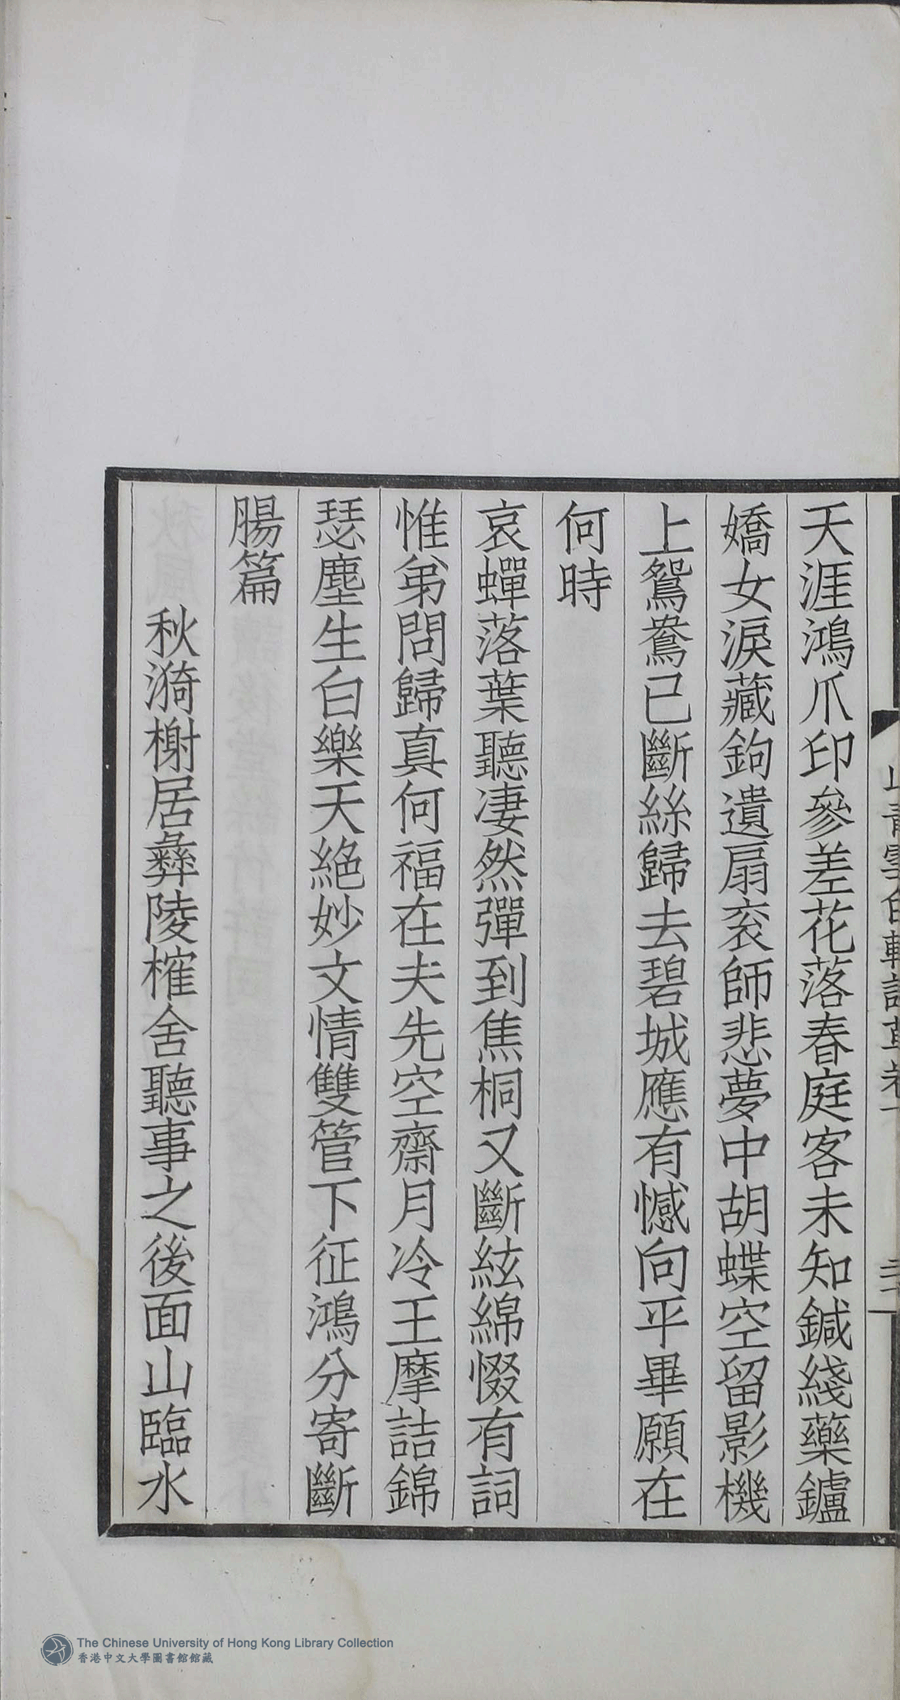 天涯鴻爪印參差花落春庭客未知鍼綫藥鑪
嬌女淚藏鉤遺扇衮師悲夢中胡蝶空留影機
上鴛鴦已斷絲歸去碧城應有憾向平畢願在
何時
哀蟬落葉聽凄然彈到焦桐又斷絃綿惙有詞
惟弟問歸真何福在夫先空齋月冷王摩詰錦
瑟塵生白樂天絕妙文情雙管下征鴻分寄斷
腸篇
秋漪榭居彝陵榷舍聽事之後面山臨水
The Chinese University of Hong Kong Library Collection
香港中文大學圖書館館藏